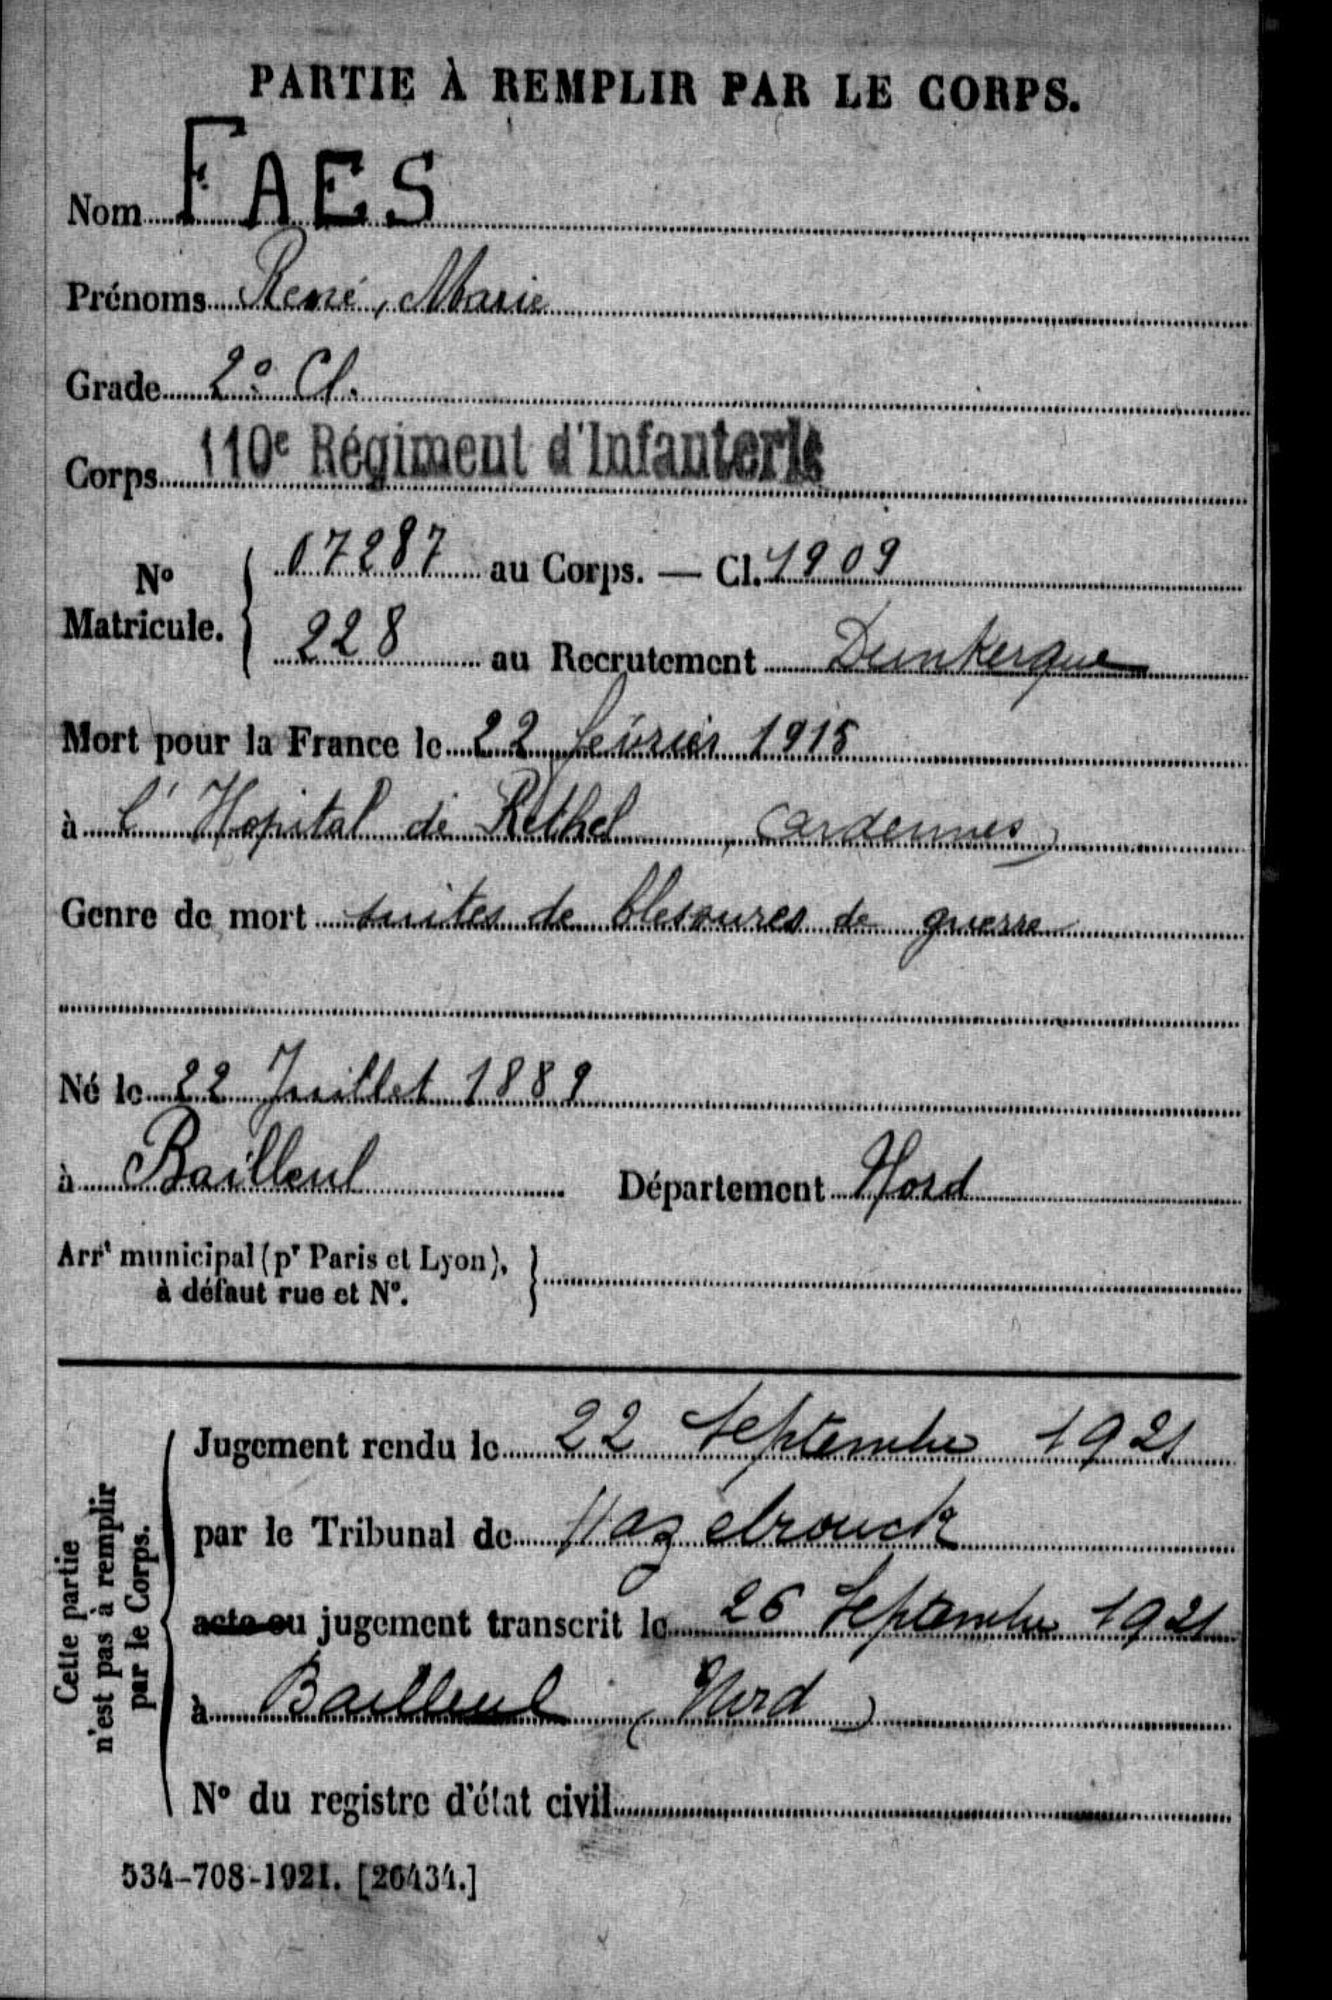 PARTIE À REMPLIR PAR LE CORPS.
Nom FAES
Prénoms René, Marie
Grade 2e Cl.
Corps 110e Régiment d'Infanterie
No Matricule. { 07287 au Corps. — Cl. 1909
228 au Recrutement Dunkerque
Mort pour la France le 22 février 1915
à l'Hopital de Réthel, Ardennes
Genre de mort suites de blessures de guerre
Né le 22 Juillet 1889
à Bailleul Département Nord
Arrt municipal (pr Paris et Lyon), }
à défaut rue et No.
Cette partie
n'est pas à remplir
par le Corps.
Jugement rendu le 22 Septembre 1921
par le Tribunal de Hazebrouck
acte ou jugement transcrit le 26 Septembre 1921
à Bailleul (Nord)
No du registre d'état civil
534-708-1921. [26434.]